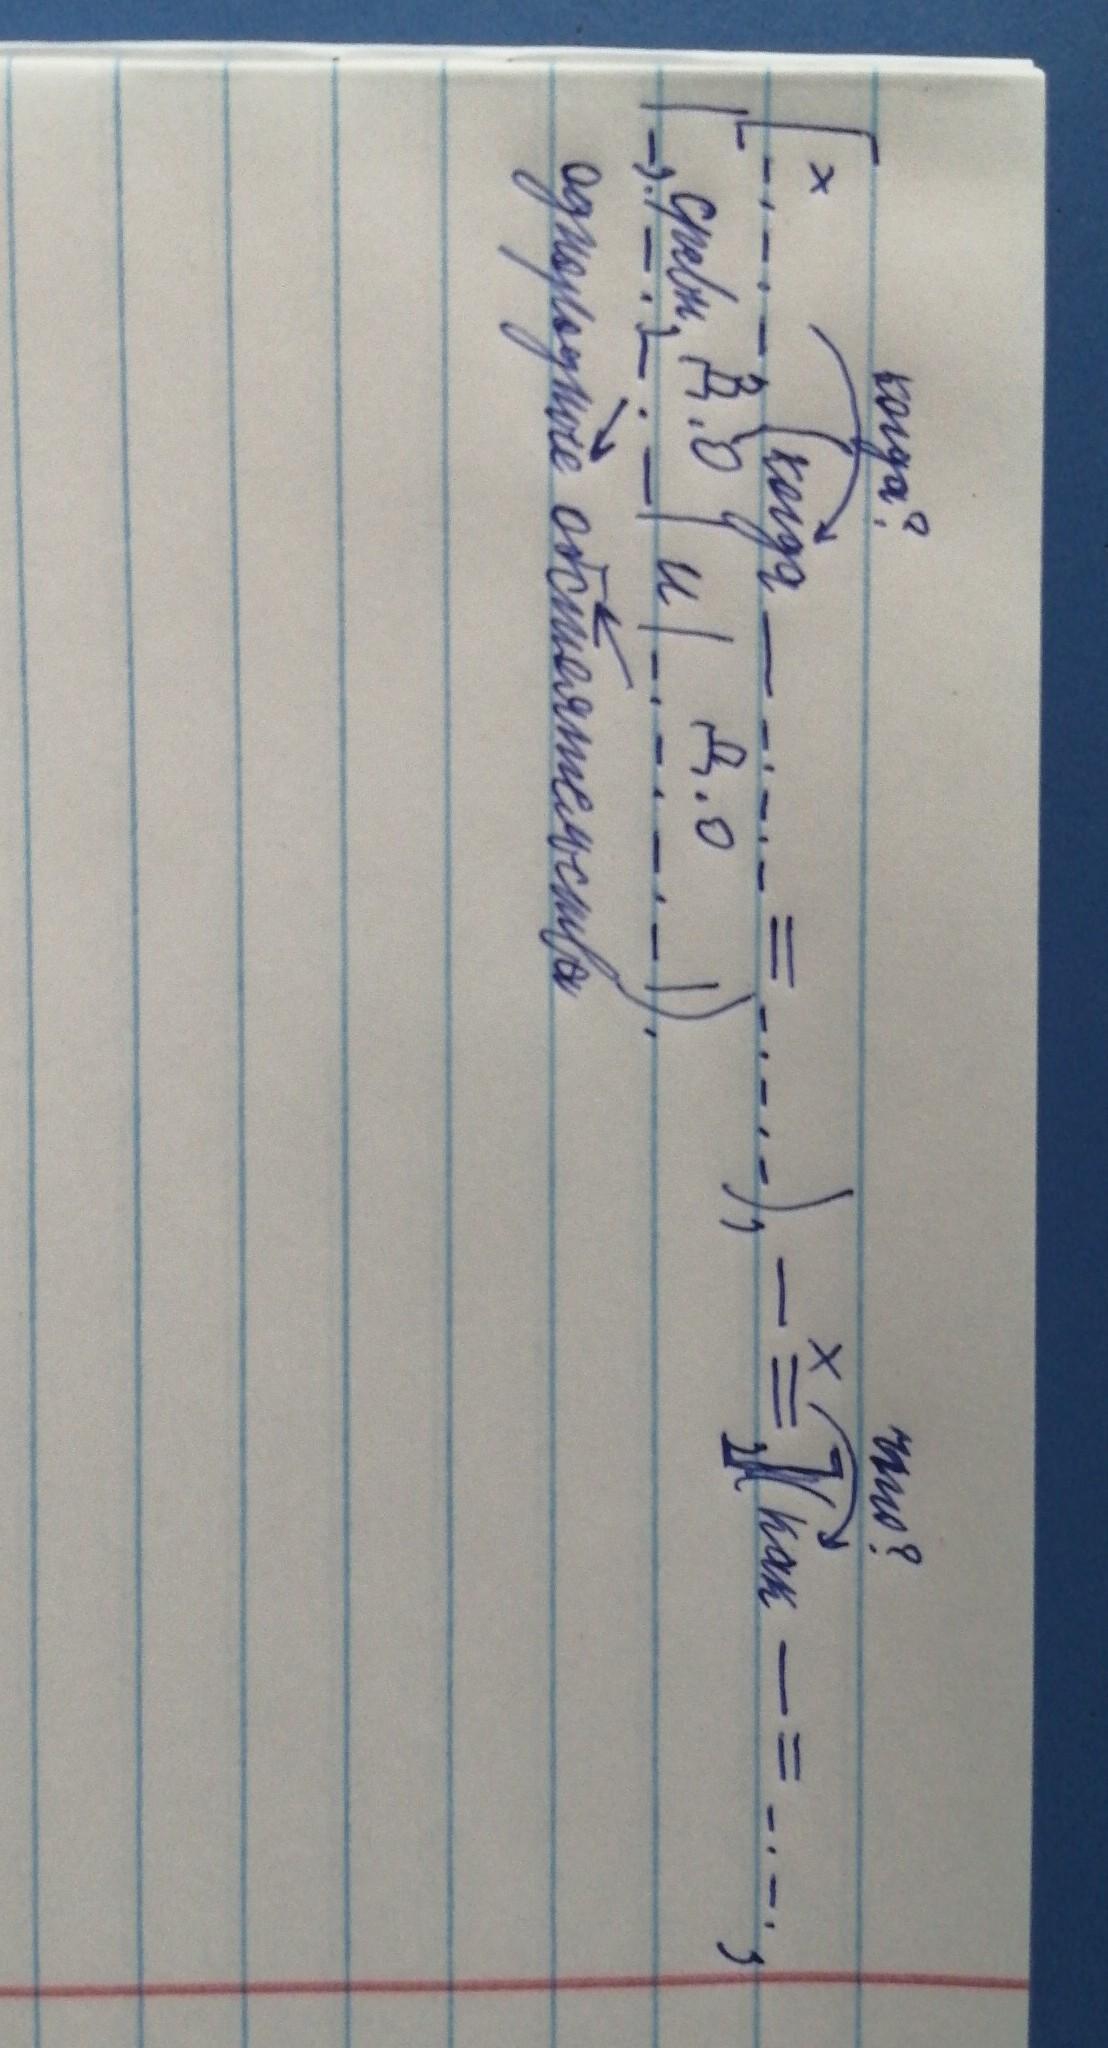 когда? что?
[ х –·–·–, (когда — –·–·– = –·–·–), — х = ], (как — = –·–·,
сравн. Д.О Д.О
|–,·|–·–,–·–| и |–·–·–·–|).
однородные обстоятельства